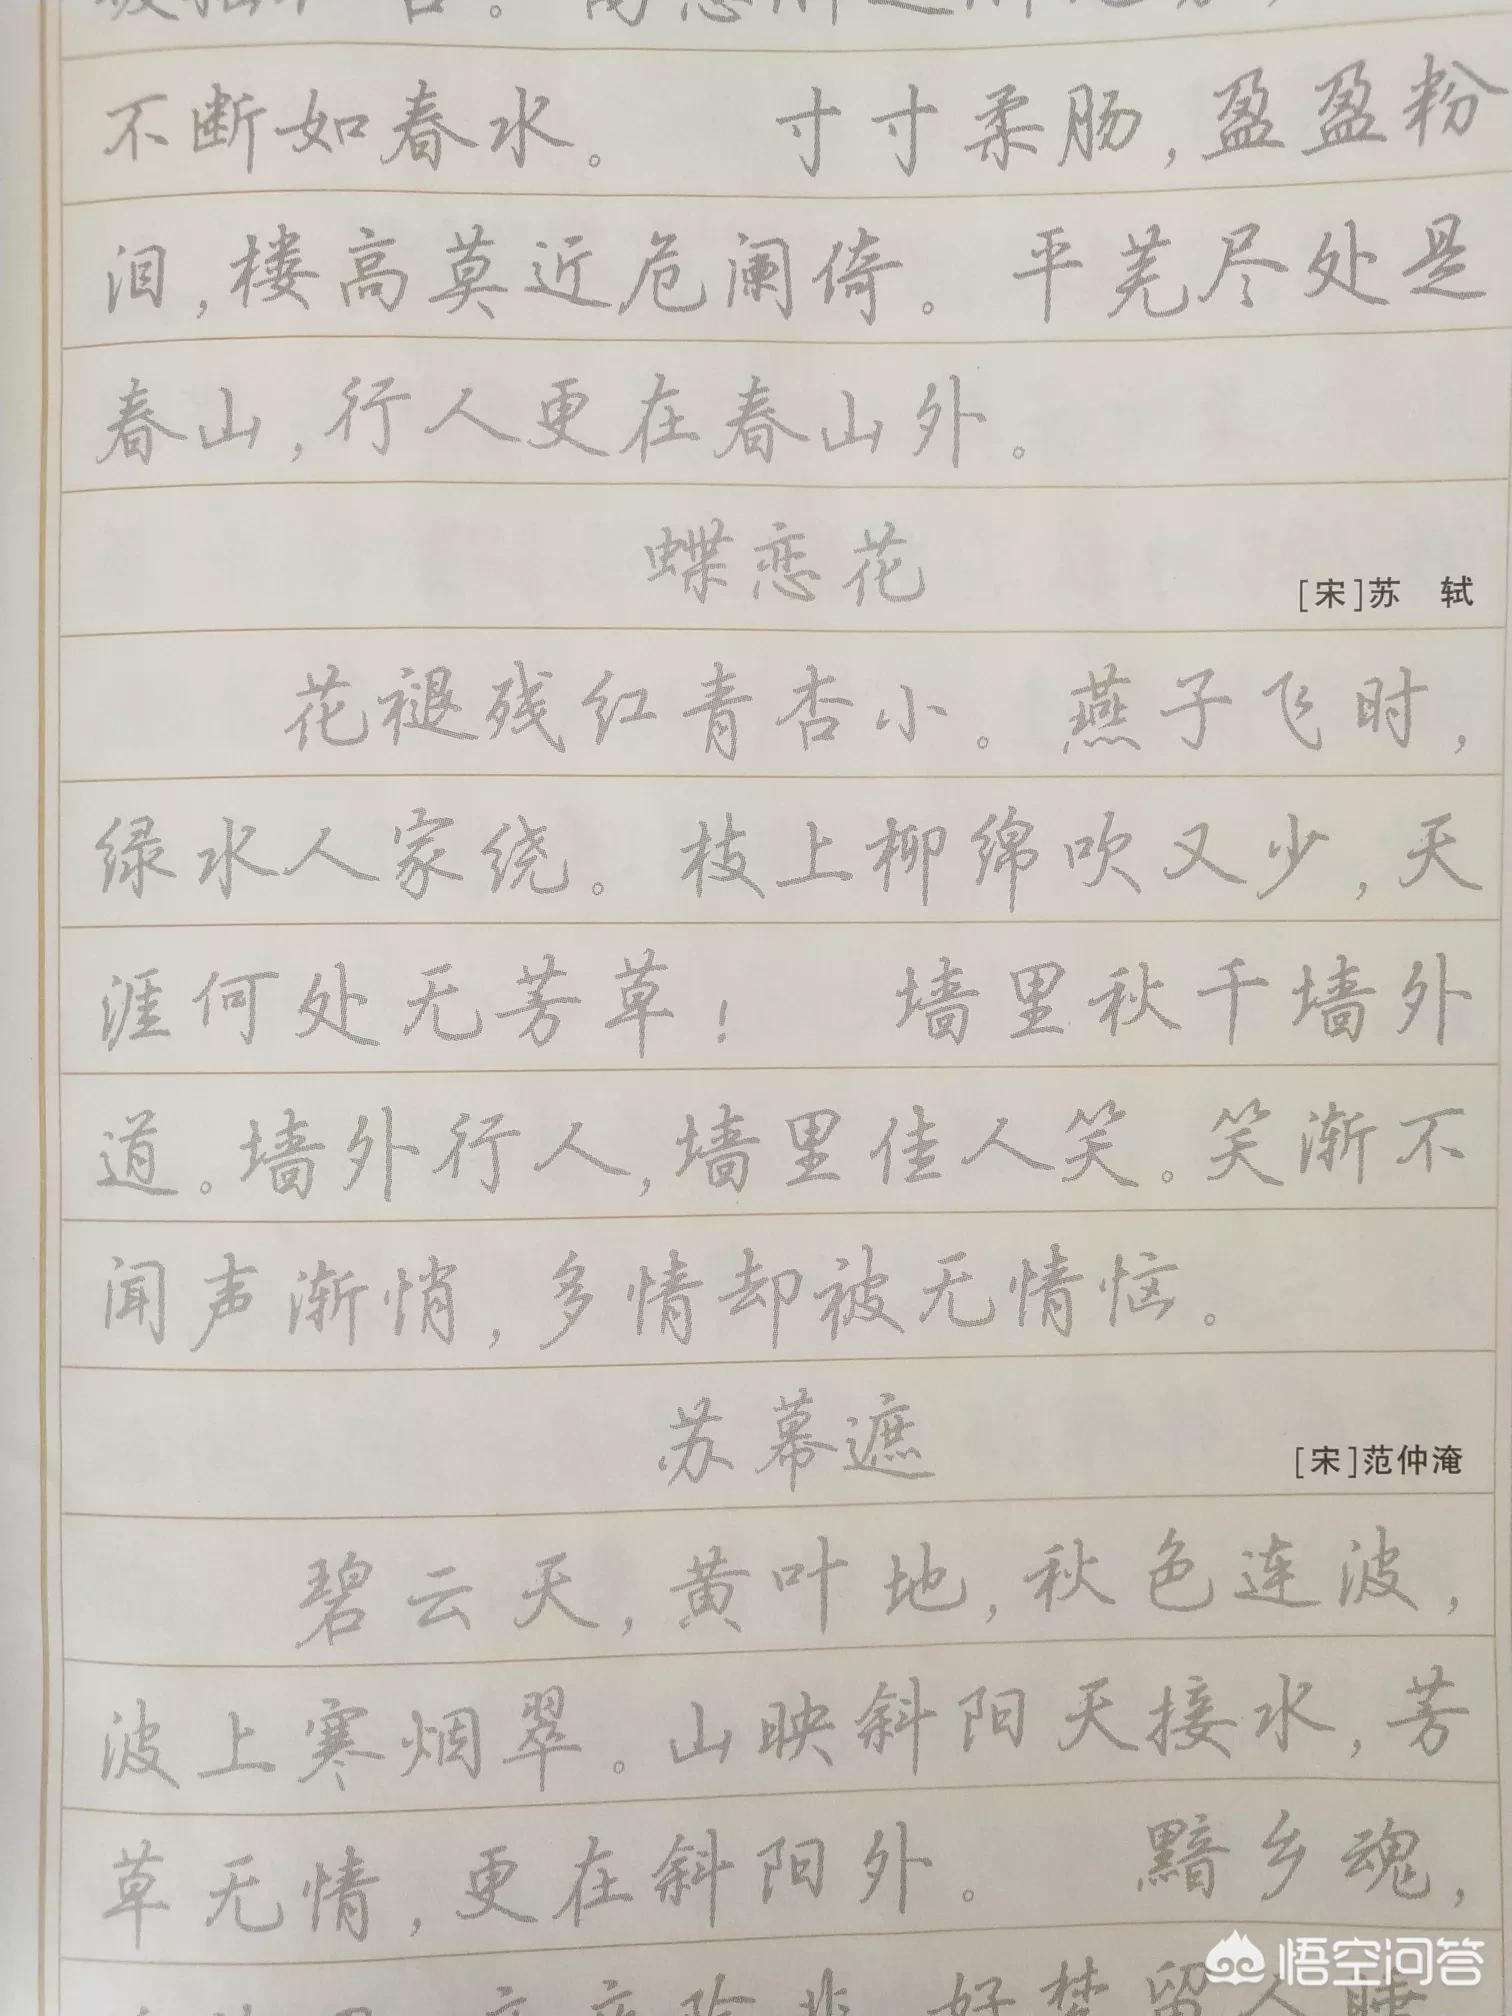 不断如春水。 寸寸柔肠,盈盈粉
泪,楼高莫近危阑倚。平芜尽处是
春山,行人更在春山外。
蝶恋花
[宋]苏 轼
花褪残红青杏小。燕子飞时,
绿水人家绕。枝上柳绵吹又少,天
涯何处无芳草! 墙里秋千墙外
道。墙外行人,墙里佳人笑。笑渐不
闻声渐悄,多情却被无情恼。
苏幕遮
[宋]范仲淹
碧云天,黄叶地,秋色连波,
波上寒烟翠。山映斜阳天接水,芳
草无情,更在斜阳外。 黯乡魂,
好梦留人睡
悟空问答